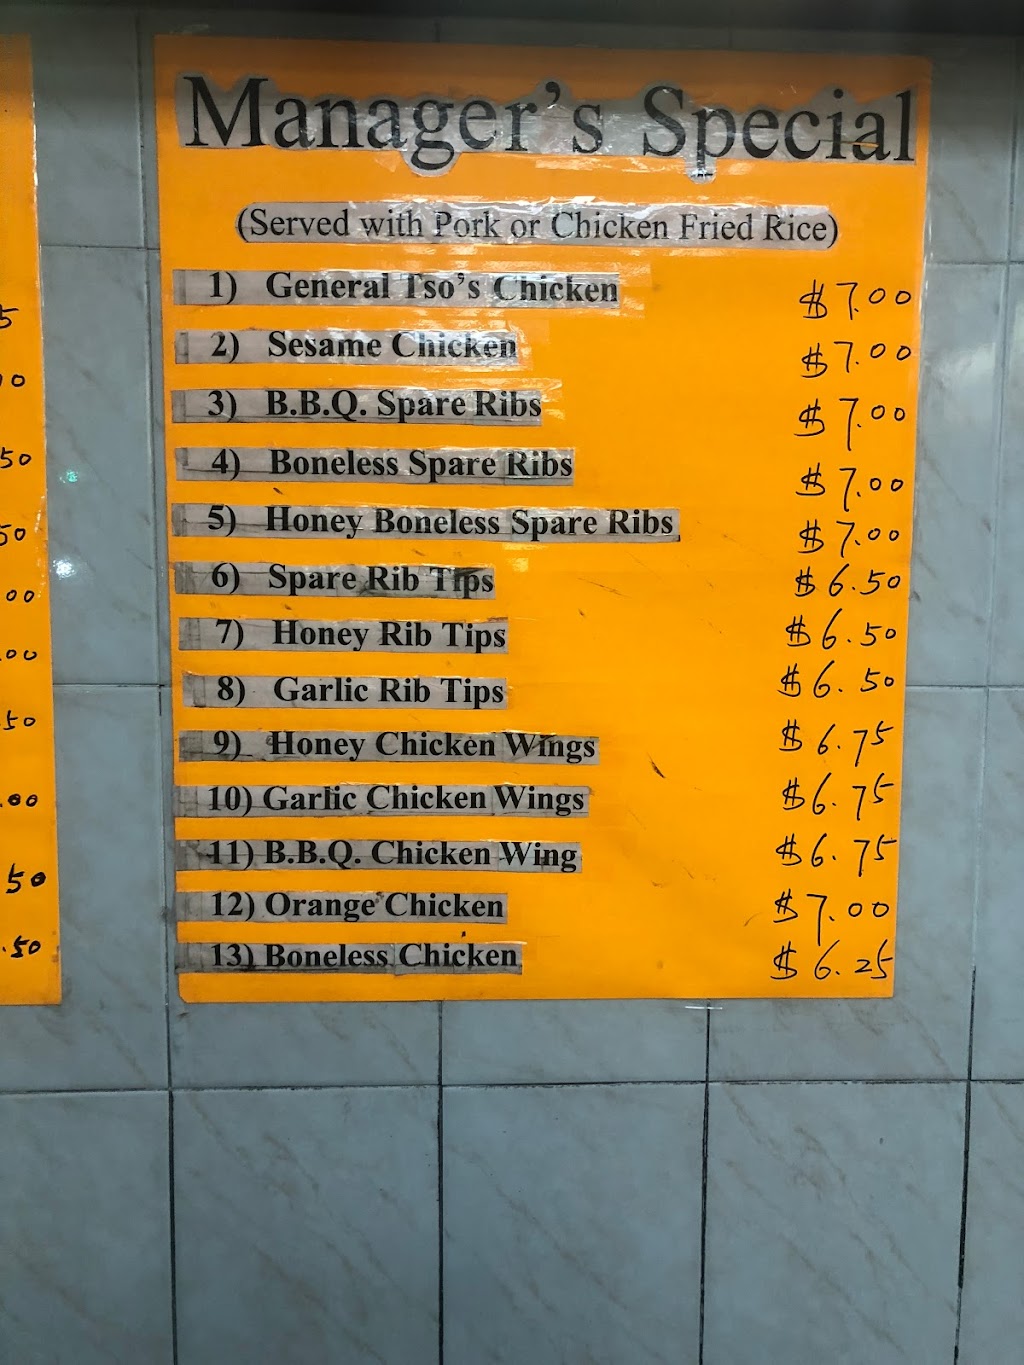 Manager's Special
(Served with Pork or Chicken Fried Rice)
1) General Tso's Chicken $7.00
2) Sesame Chicken $7.00
3) B.B.Q. Spare Ribs $7.00
4) Boneless Spare Ribs $7.00
5) Honey Boneless Spare Ribs $7.00
6) Spare Rib Tips $6.50
7) Honey Rib Tips $6.50
8) Garlic Rib Tips $6.50
9) Honey Chicken Wings $6.75
10) Garlic Chicken Wings $6.75
11) B.B.Q. Chicken Wing $6.75
12) Orange Chicken $7.00
13) Boneless Chicken $6.25